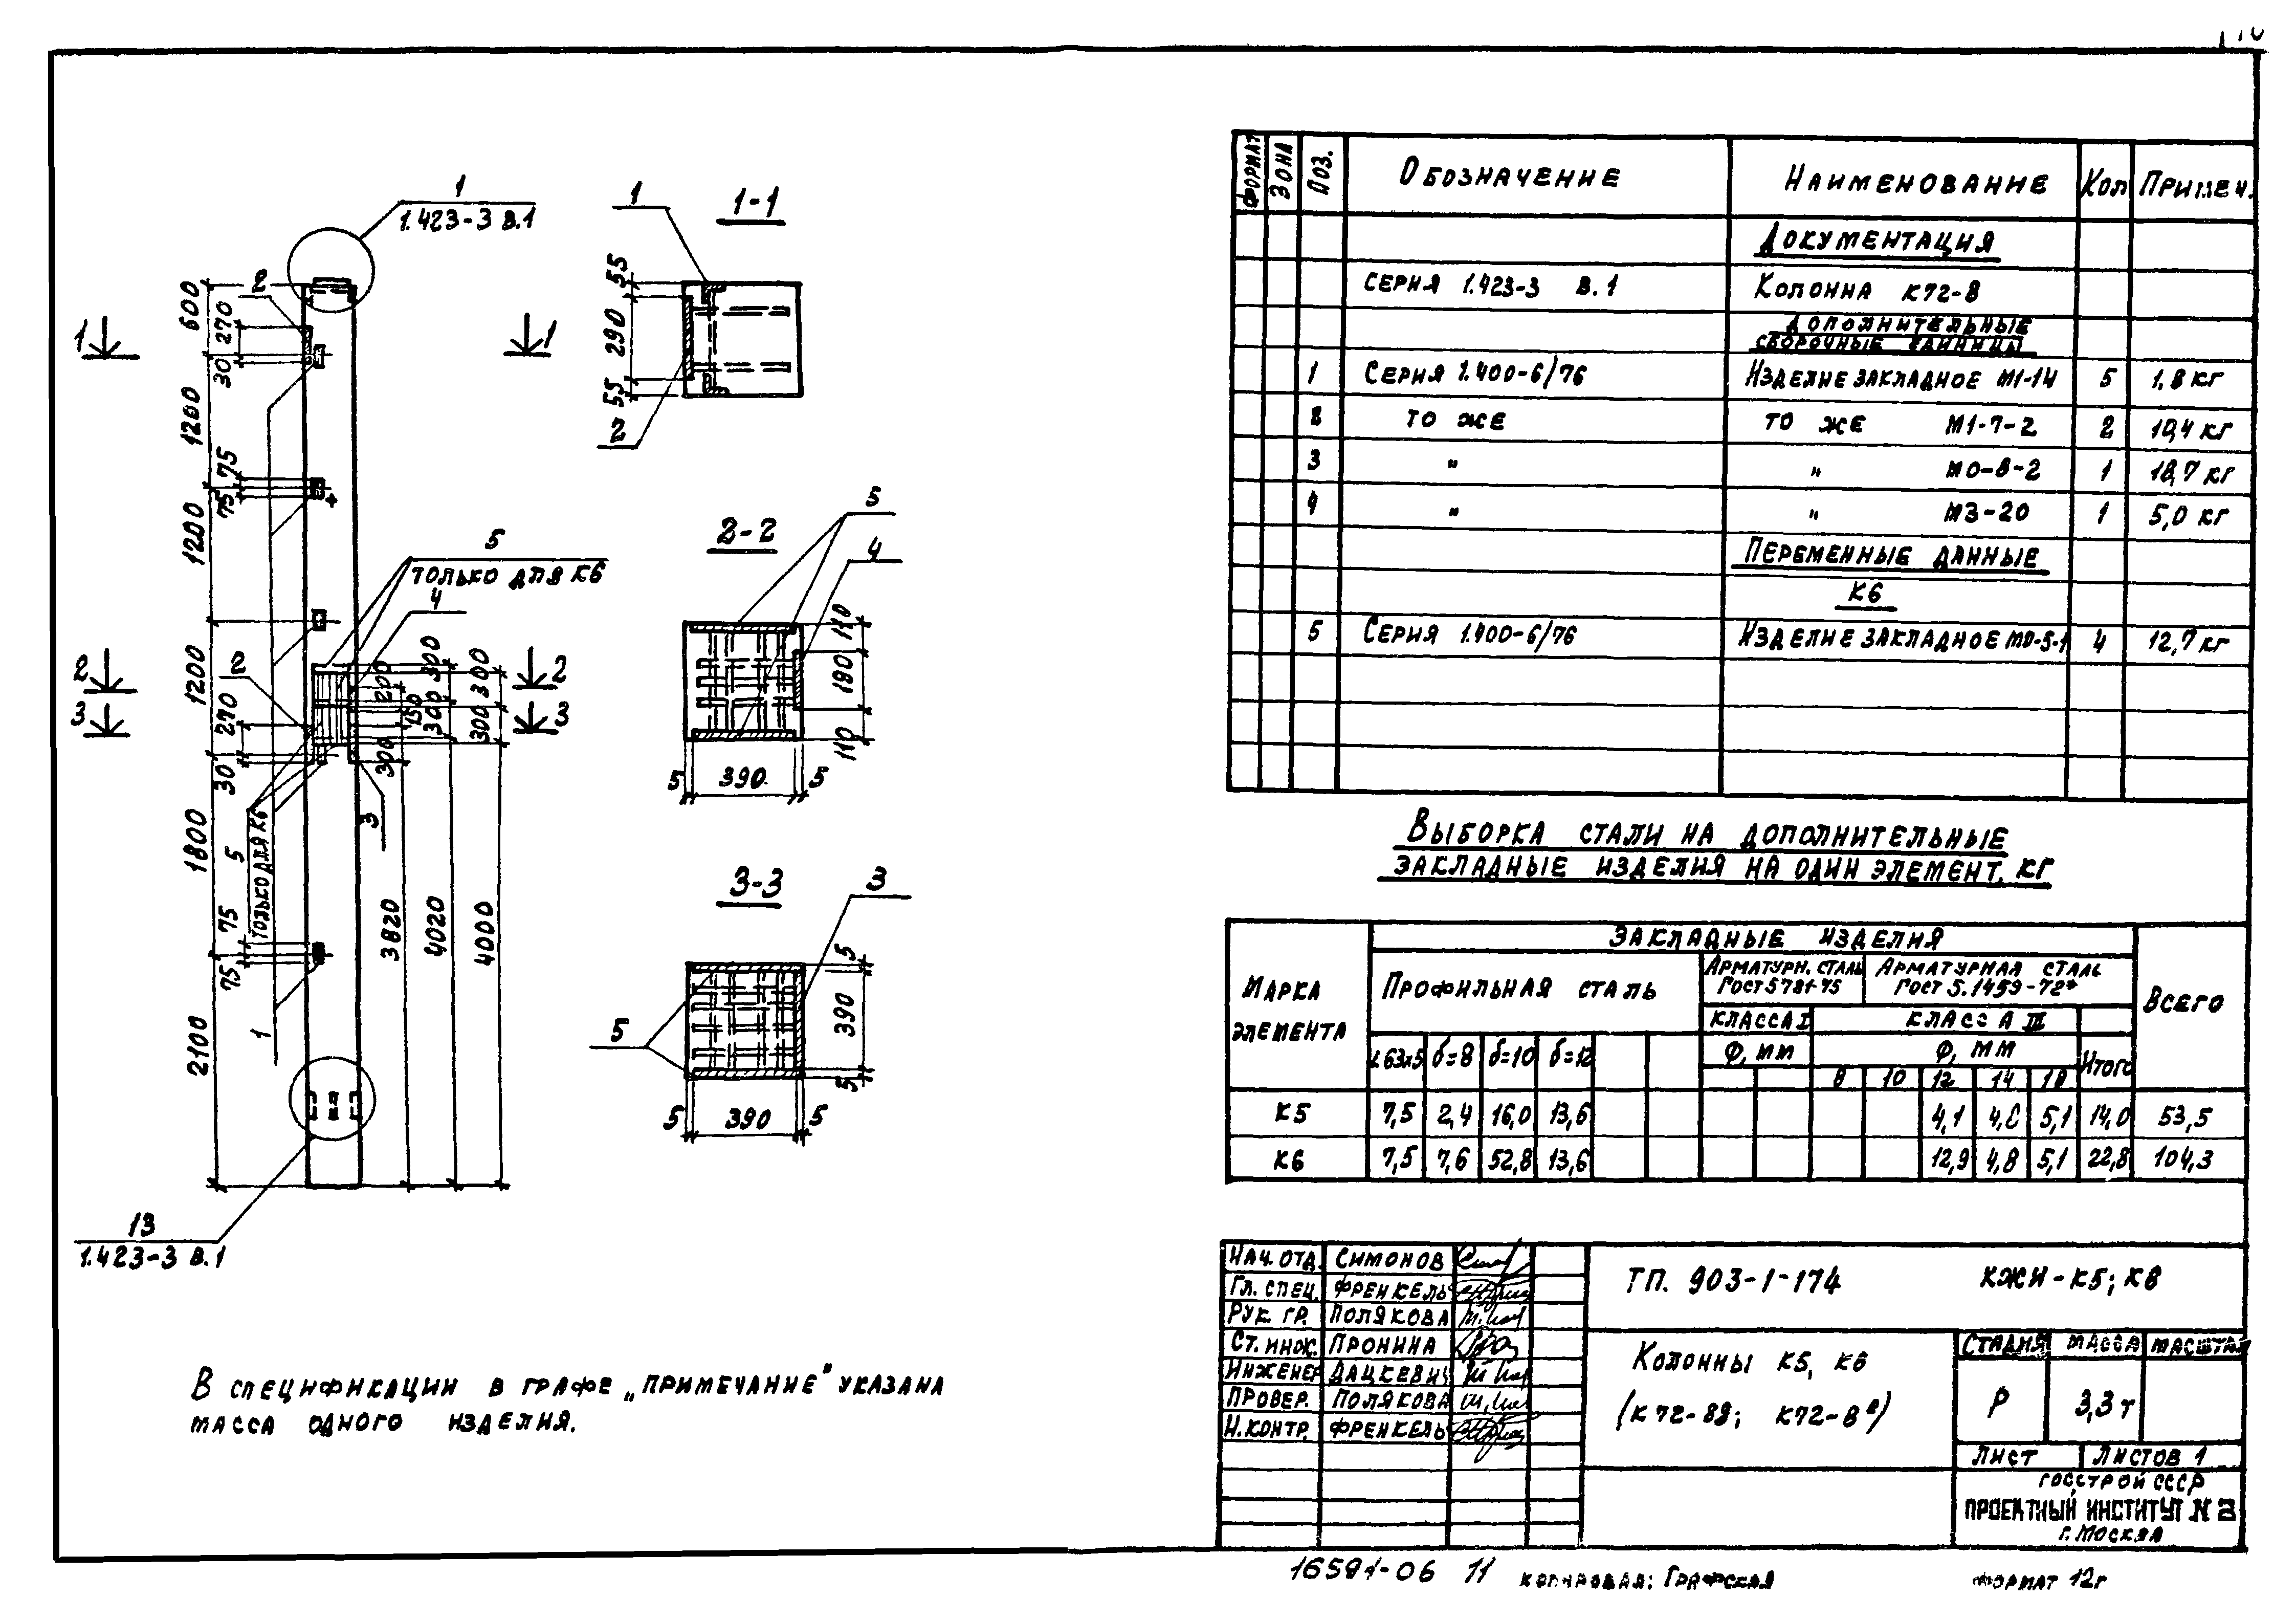 1
1.423-3 В.1
2
600
270
30
1200
75
75
1200
1200
270
30
1800
75
75
2100
1
1
2
2
3
3
5
только для К6
4
2
300
200
150
300
300
300
300
3
5
только для К6
1
3820
4020
4000
13
1.423-3 В.1
1-1
1
55
290
55
2
2-2
5
4
110
190
110
5
390
5
3-3
3
5
390
5
5
5
390
5
В спецификации в графе „примечание" указана
масса одного изделия.
Формат
Зона
Поз.
Обозначение
Наименование
Кол
Примеч.
Документация
Серия 1.423-3 В.1
Колонна К72-8
Дополнительные
сборочные единицы
1 Серия 1.400-6/76 Изделие закладное М1-14 5 1,8 кг
2 то же то же М1-7-2 2 10,4 кг
3 " " М0-8-2 1 18,7 кг
4 " " М3-20 1 5,0 кг
Переменные данные
К6
5 Серия 1.400-6/76 Изделие закладное М0-5-1 4 12,7 кг
Выборка стали на дополнительные
закладные изделия на один элемент, кг
Марка
элемента
Закладные изделия
Всего
Профильная сталь
Арматурн. сталь
ГОСТ 5781-75
Арматурная сталь
ГОСТ 5.1459-72*
Класса I
Класс А III
Итого
L 63х5 δ=8 δ=10 δ=12
Ф, мм
Ф, мм
8 10 12 14 18
К5 7,5 2,4 16,0 13,6 4,1 4,8 5,1 14,0 53,5
К6 7,5 7,6 52,8 13,6 12,9 4,8 5,1 22,8 104,3
Нач. отд. Симонов
Гл. спец. Френкель
Рук. гр. Полякова
Ст. инж. Пронина
Инженер Дацкевич
Провер. Полякова
Н. контр. Френкель
ТП. 903-1-174 КЖИ-К5; К6
Колонны К5, К6
Стадия Масса Масштаб
Р 3,3 т
Лист Листов 1
Госстрой СССР
Проектный институт № 2
г. Москва
16591-06 11
Копировал: Графская
Формат 12г